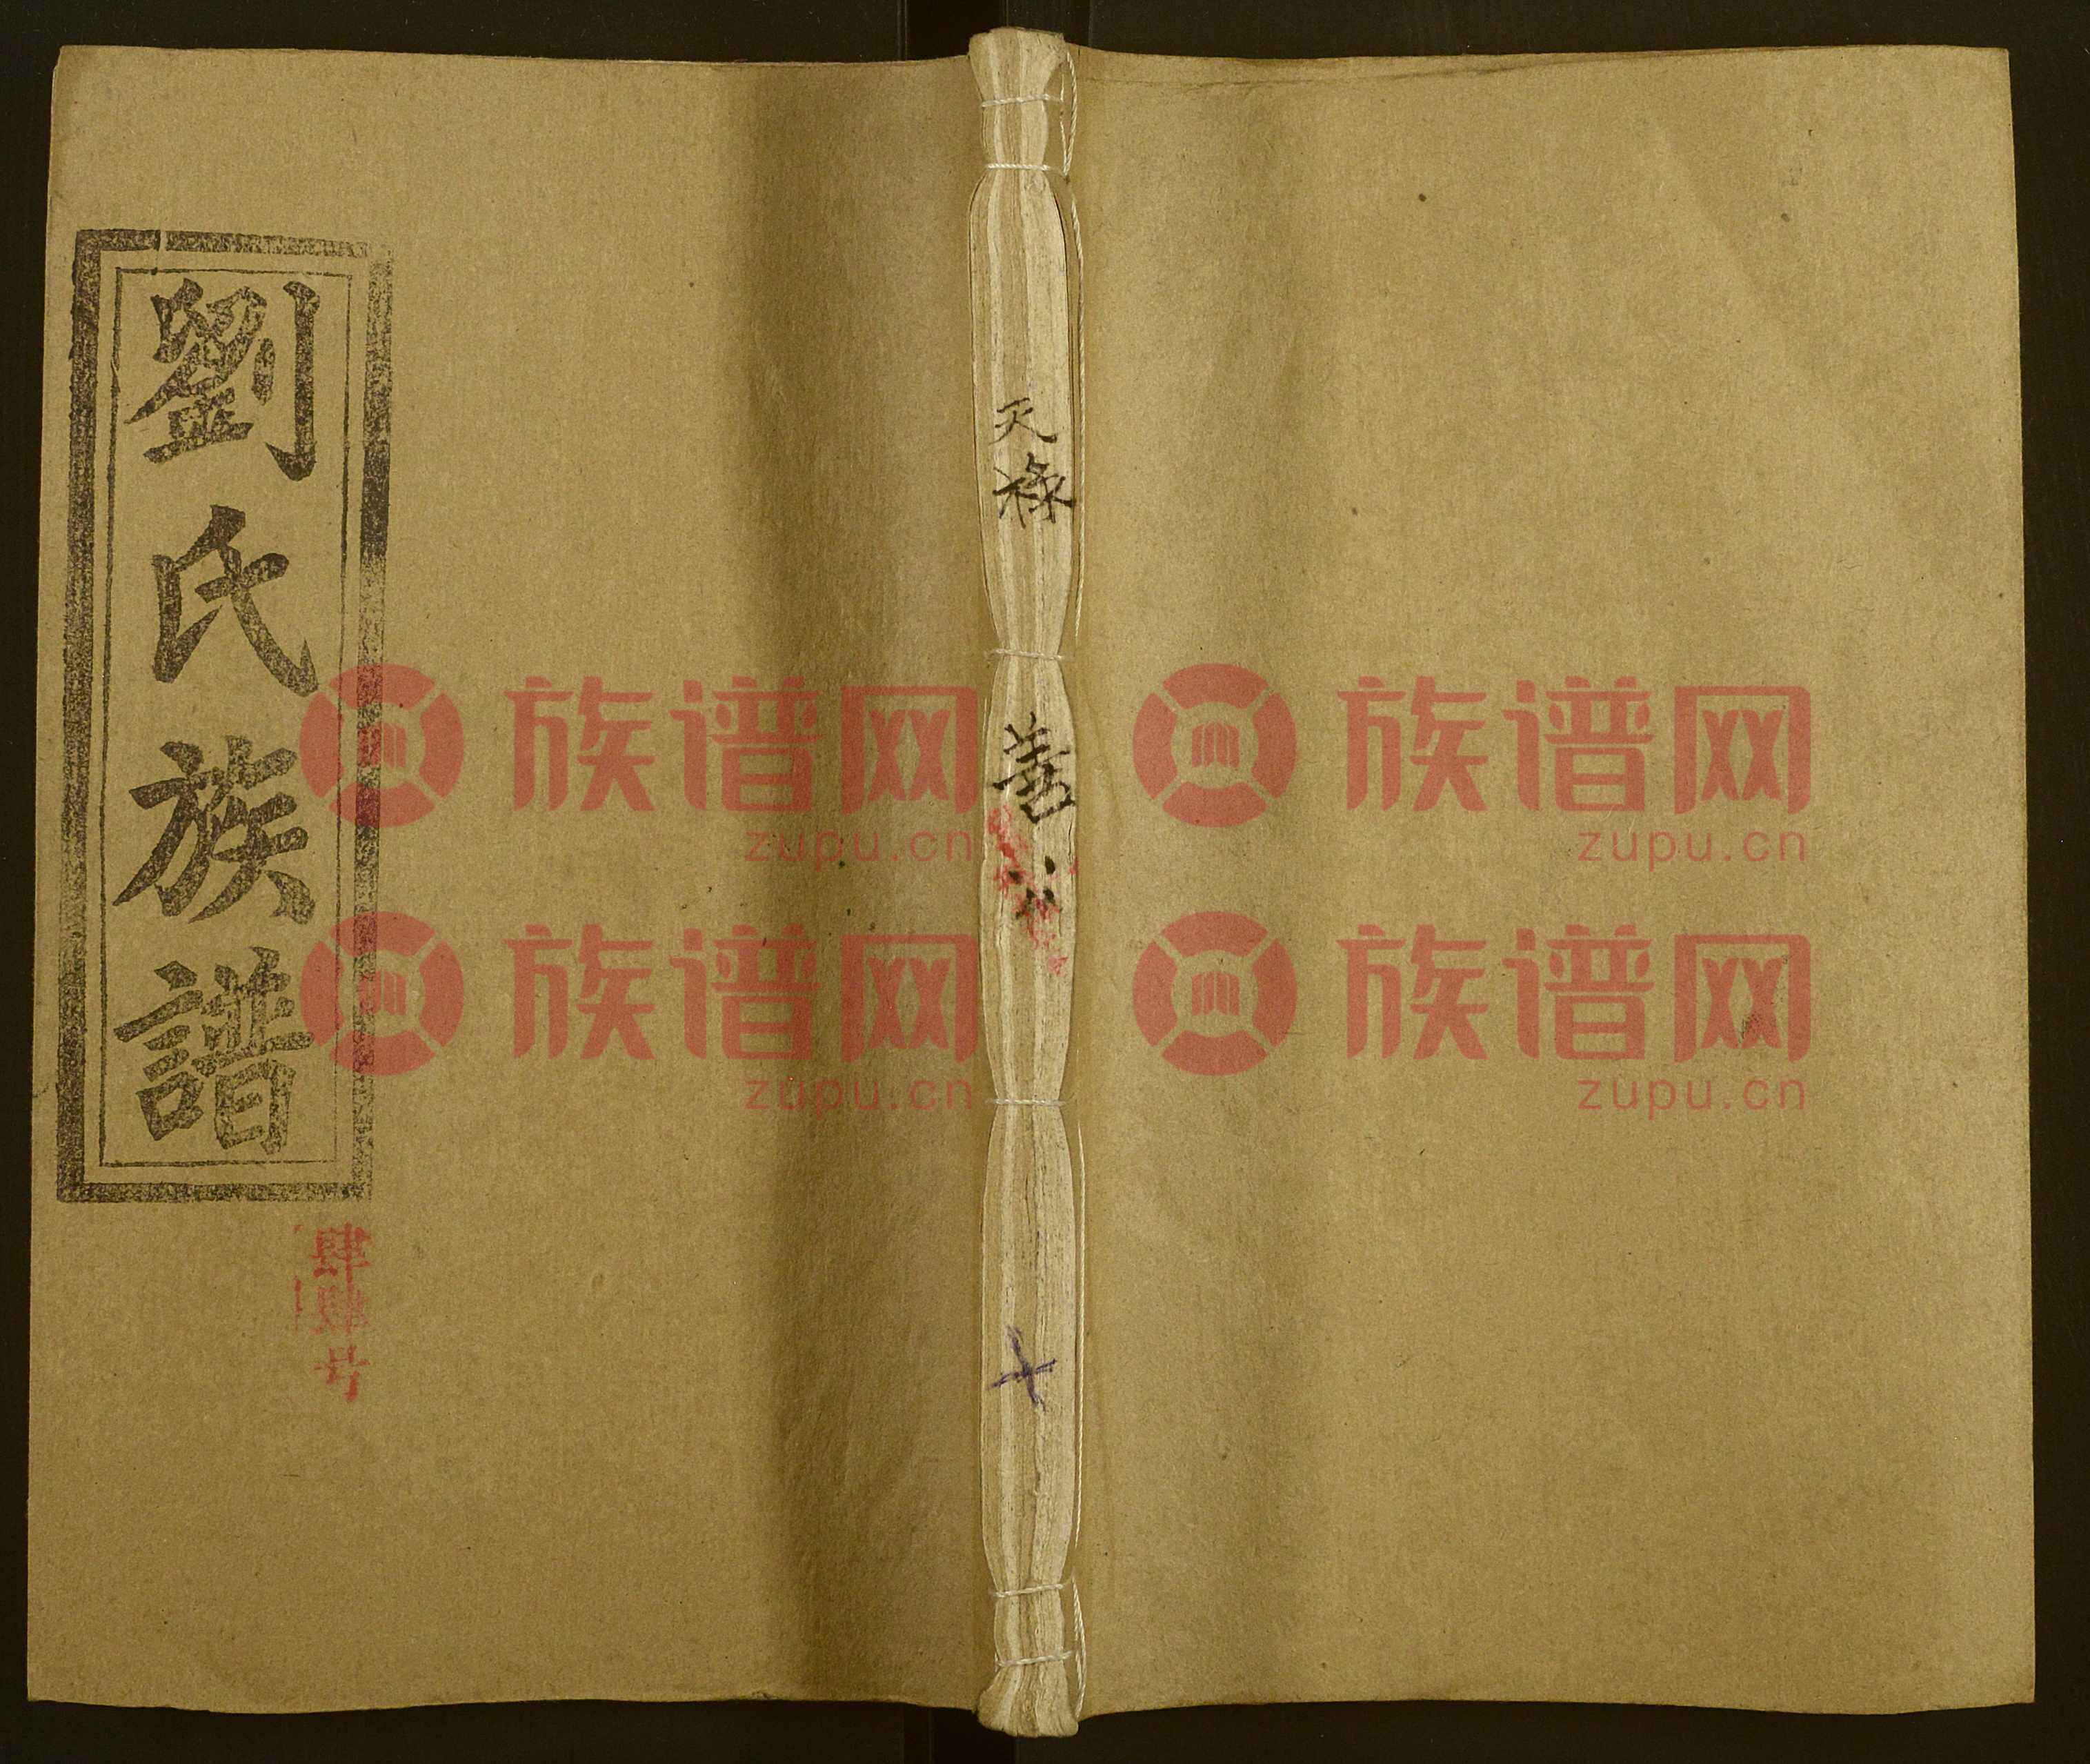 劉氏族譜
天祿
善
十
族谱网
zupu.cn
族谱网
zupu.cn
族谱网
zupu.cn
族谱网
zupu.cn